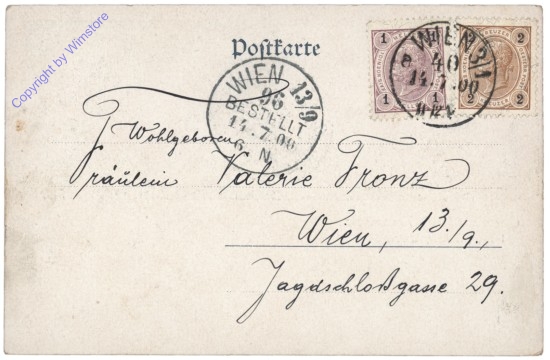 Copyright by Wimstore
Postkarte
1 1
1 1
2 2
2 2
WIEN 3/1
40
14.7.00
WIEN 13/9
96
BESTELLT
14.7.00
6. N.
Wohlgeboren
Fräulein Valerie Tronz
Wien, 13./9.,
Jagdschloßgasse 29.